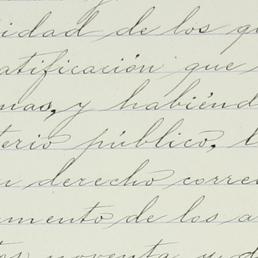 idad de los qu
atificación que
nas, y habiénd
terio público, l
u derecho corre
amento de los a
noventa y d